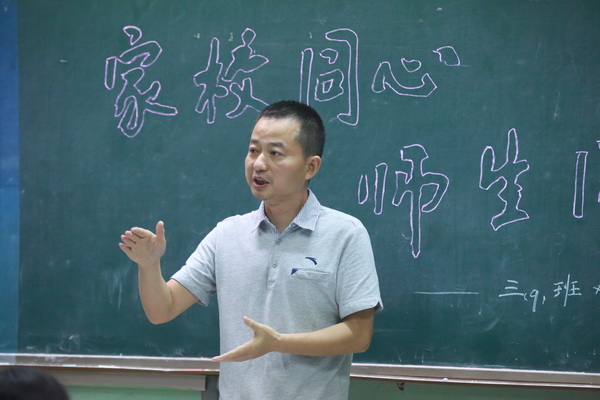 家校同心
师生
三(9)班